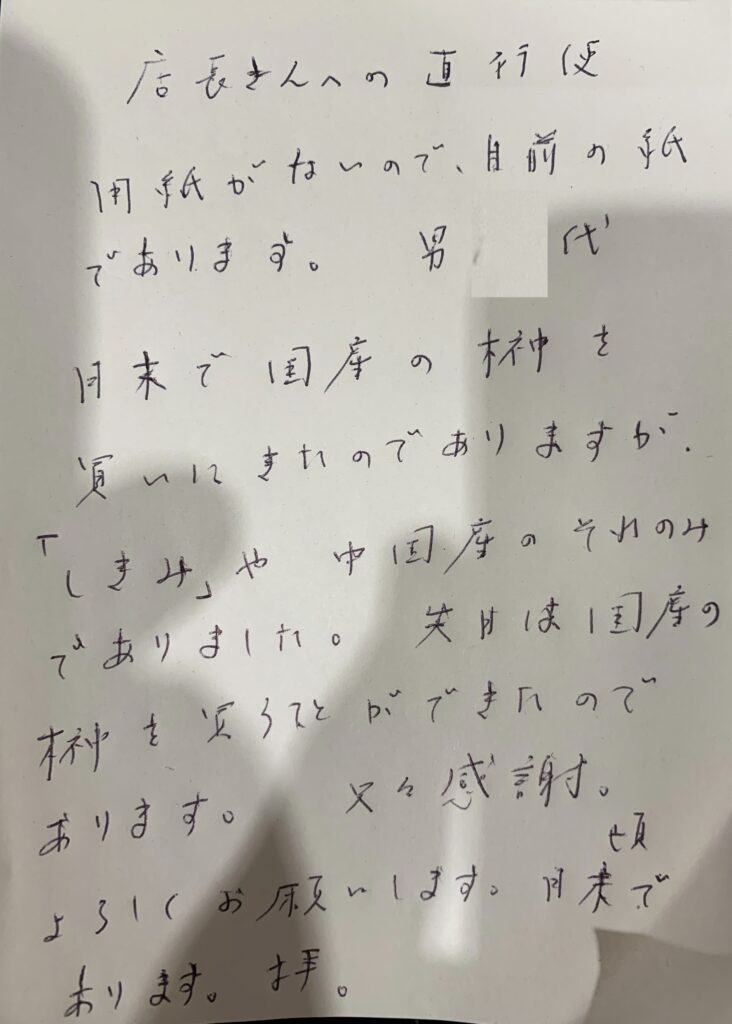 店長さんへの直行便
用紙がないので、自前の紙
であります。 男 代
月末で国産の榊を
買いにきたのでありますが、
「しきみ」や中国産のそれのみ
でありました。 先月は国産の
榊を買うことができたので
あります。 只々感謝。
よろしくお願いします。月末頃で
あります。拝。